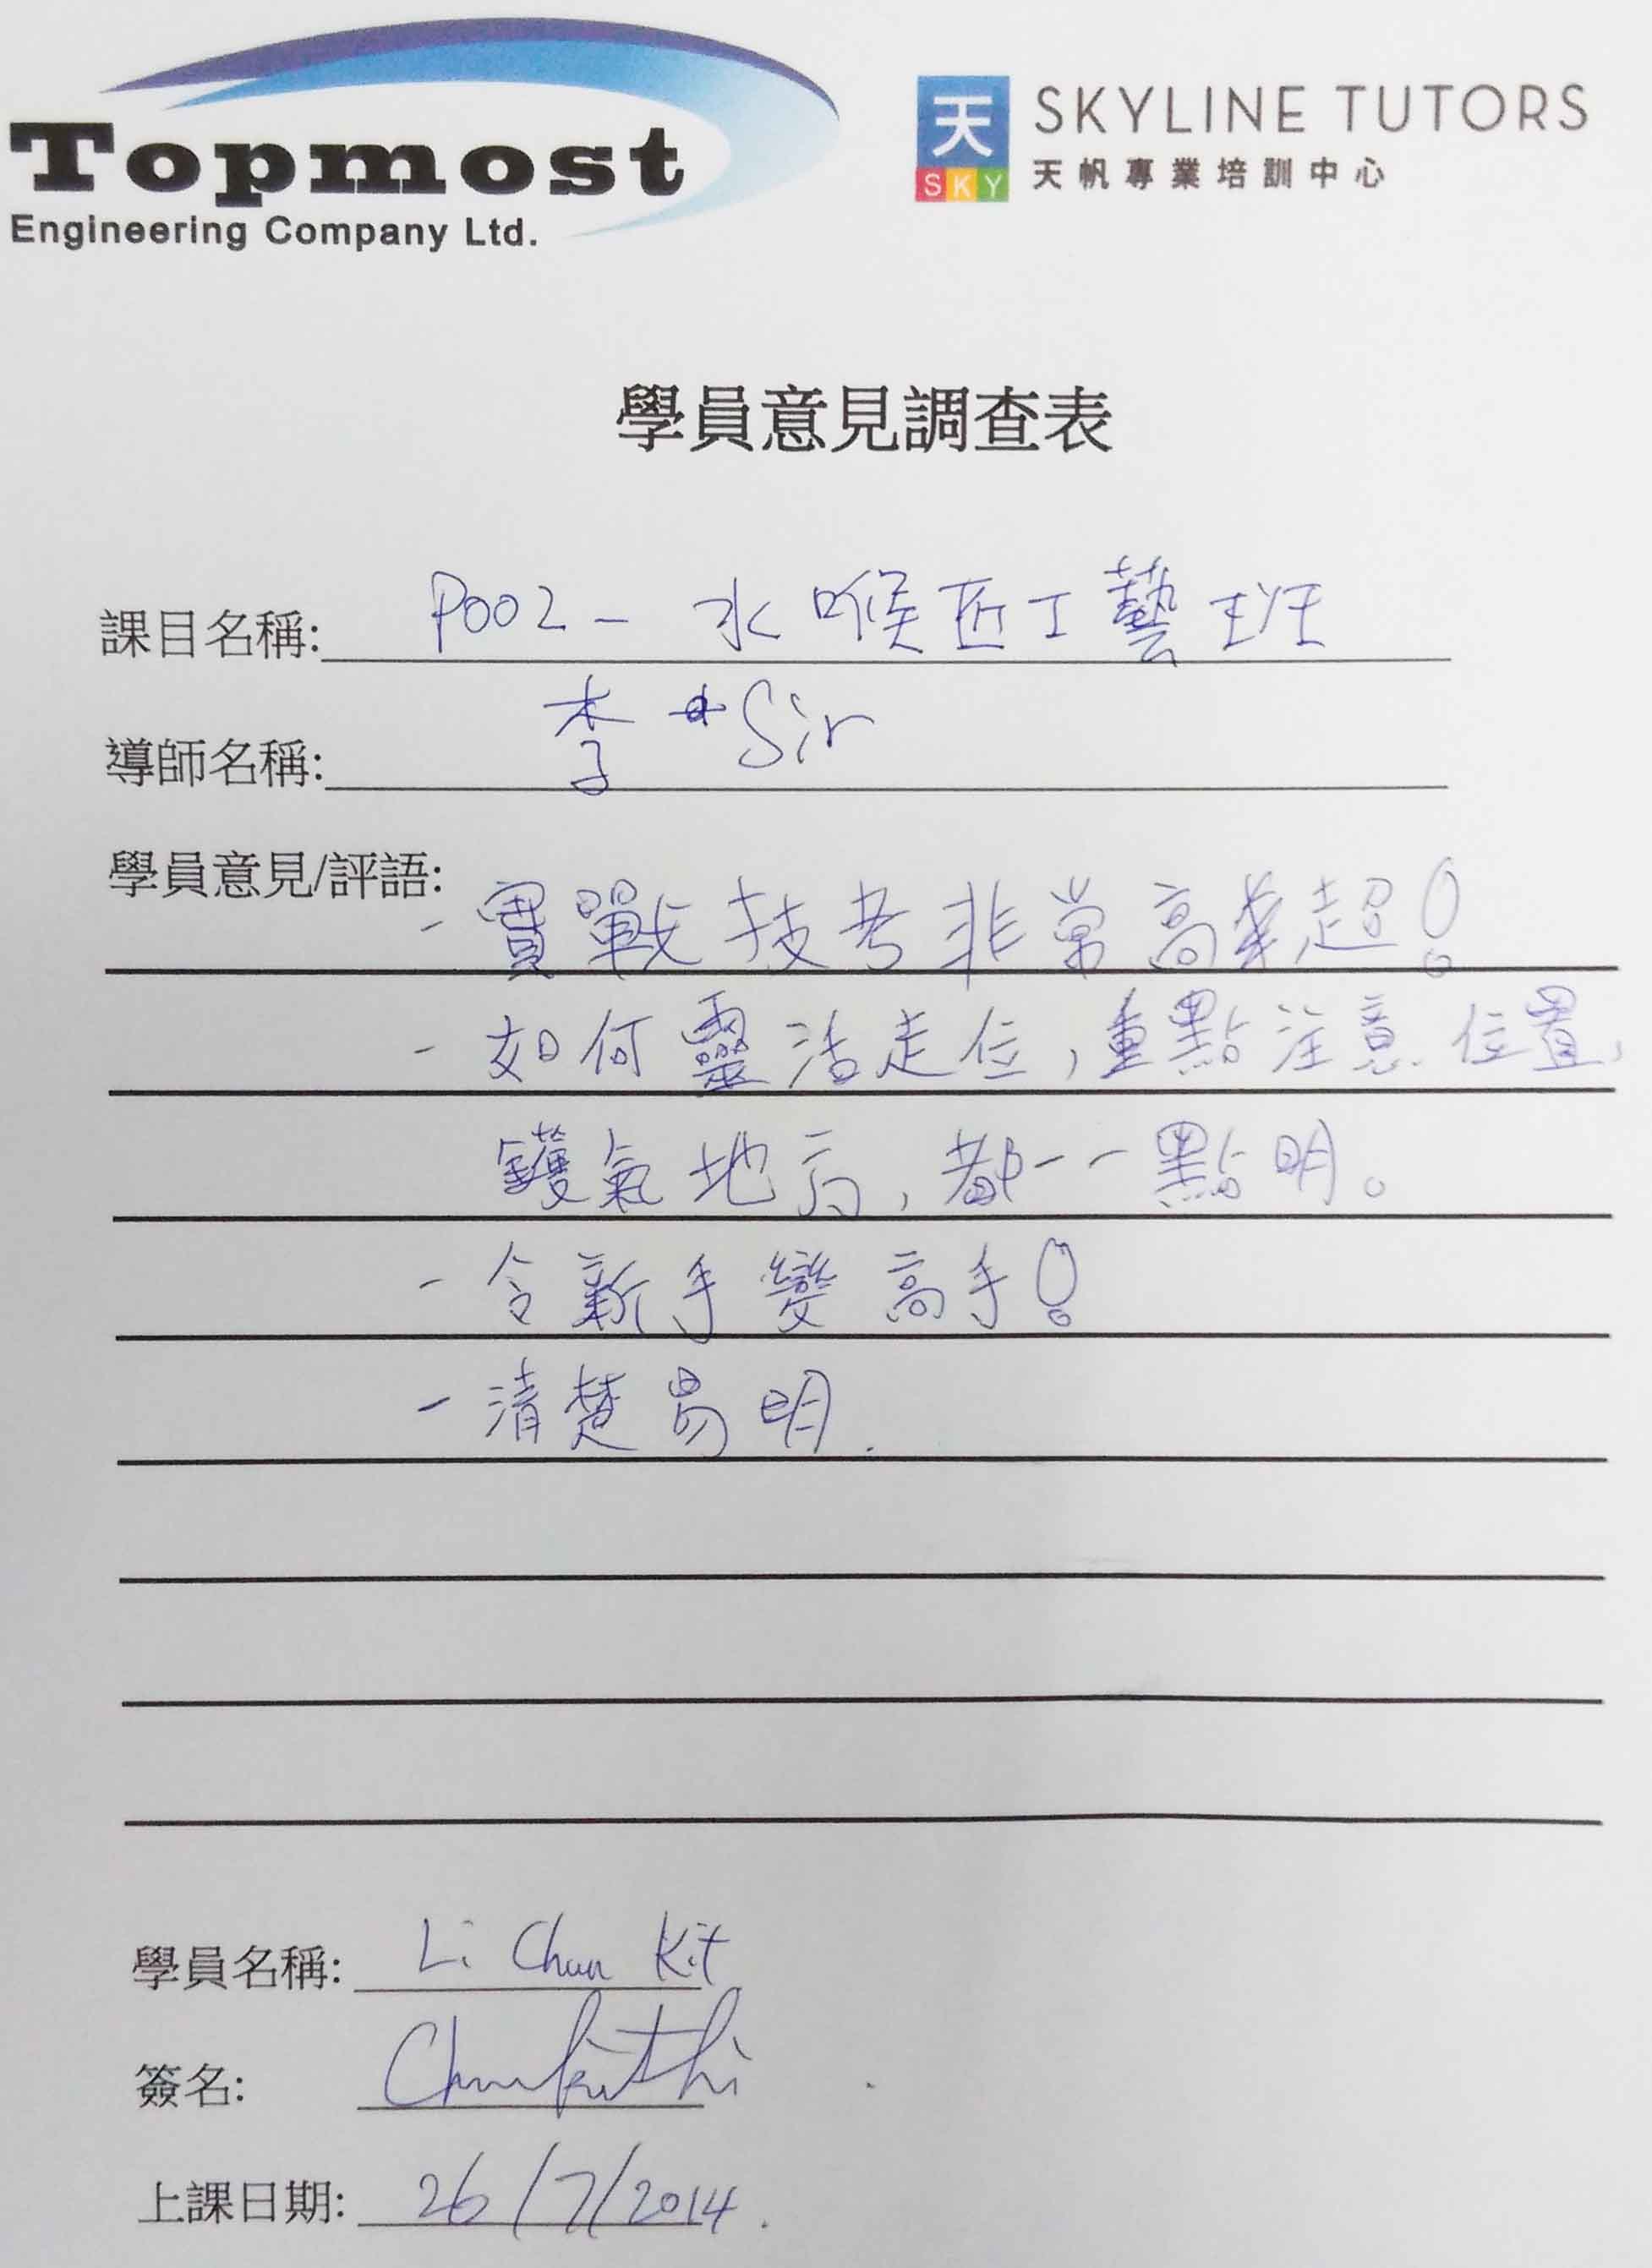 Topmost
Engineering Company Ltd.
天 SKY
SKYLINE TUTORS
天帆專業培訓中心
學員意見調查表
課目名稱: P002 - 水喉匠工藝班
導師名稱: 李 Sir
學員意見/評語:
- 實戰技考非常高超!
- 如何靈活走位,重點注意位置,
鑊氣地方,都一一點明。
- 令新手變高手!
- 清楚易明.
學員名稱: Li Chun Kit
簽名:
上課日期: 26/7/2014.